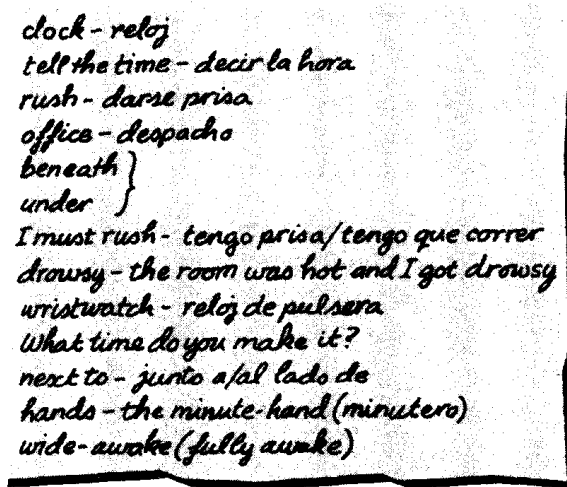 clock - reloj
tell the time - decir la hora
rush - darse prisa
office - despacho
beneath }
under
I must rush - tengo prisa/tengo que correr
drowsy - the room was hot and I got drowsy
wristwatch - reloj de pulsera
What time do you make it?
next to - junto a/al lado de
hands - the minute-hand (minutero)
wide-awake (fully awake)